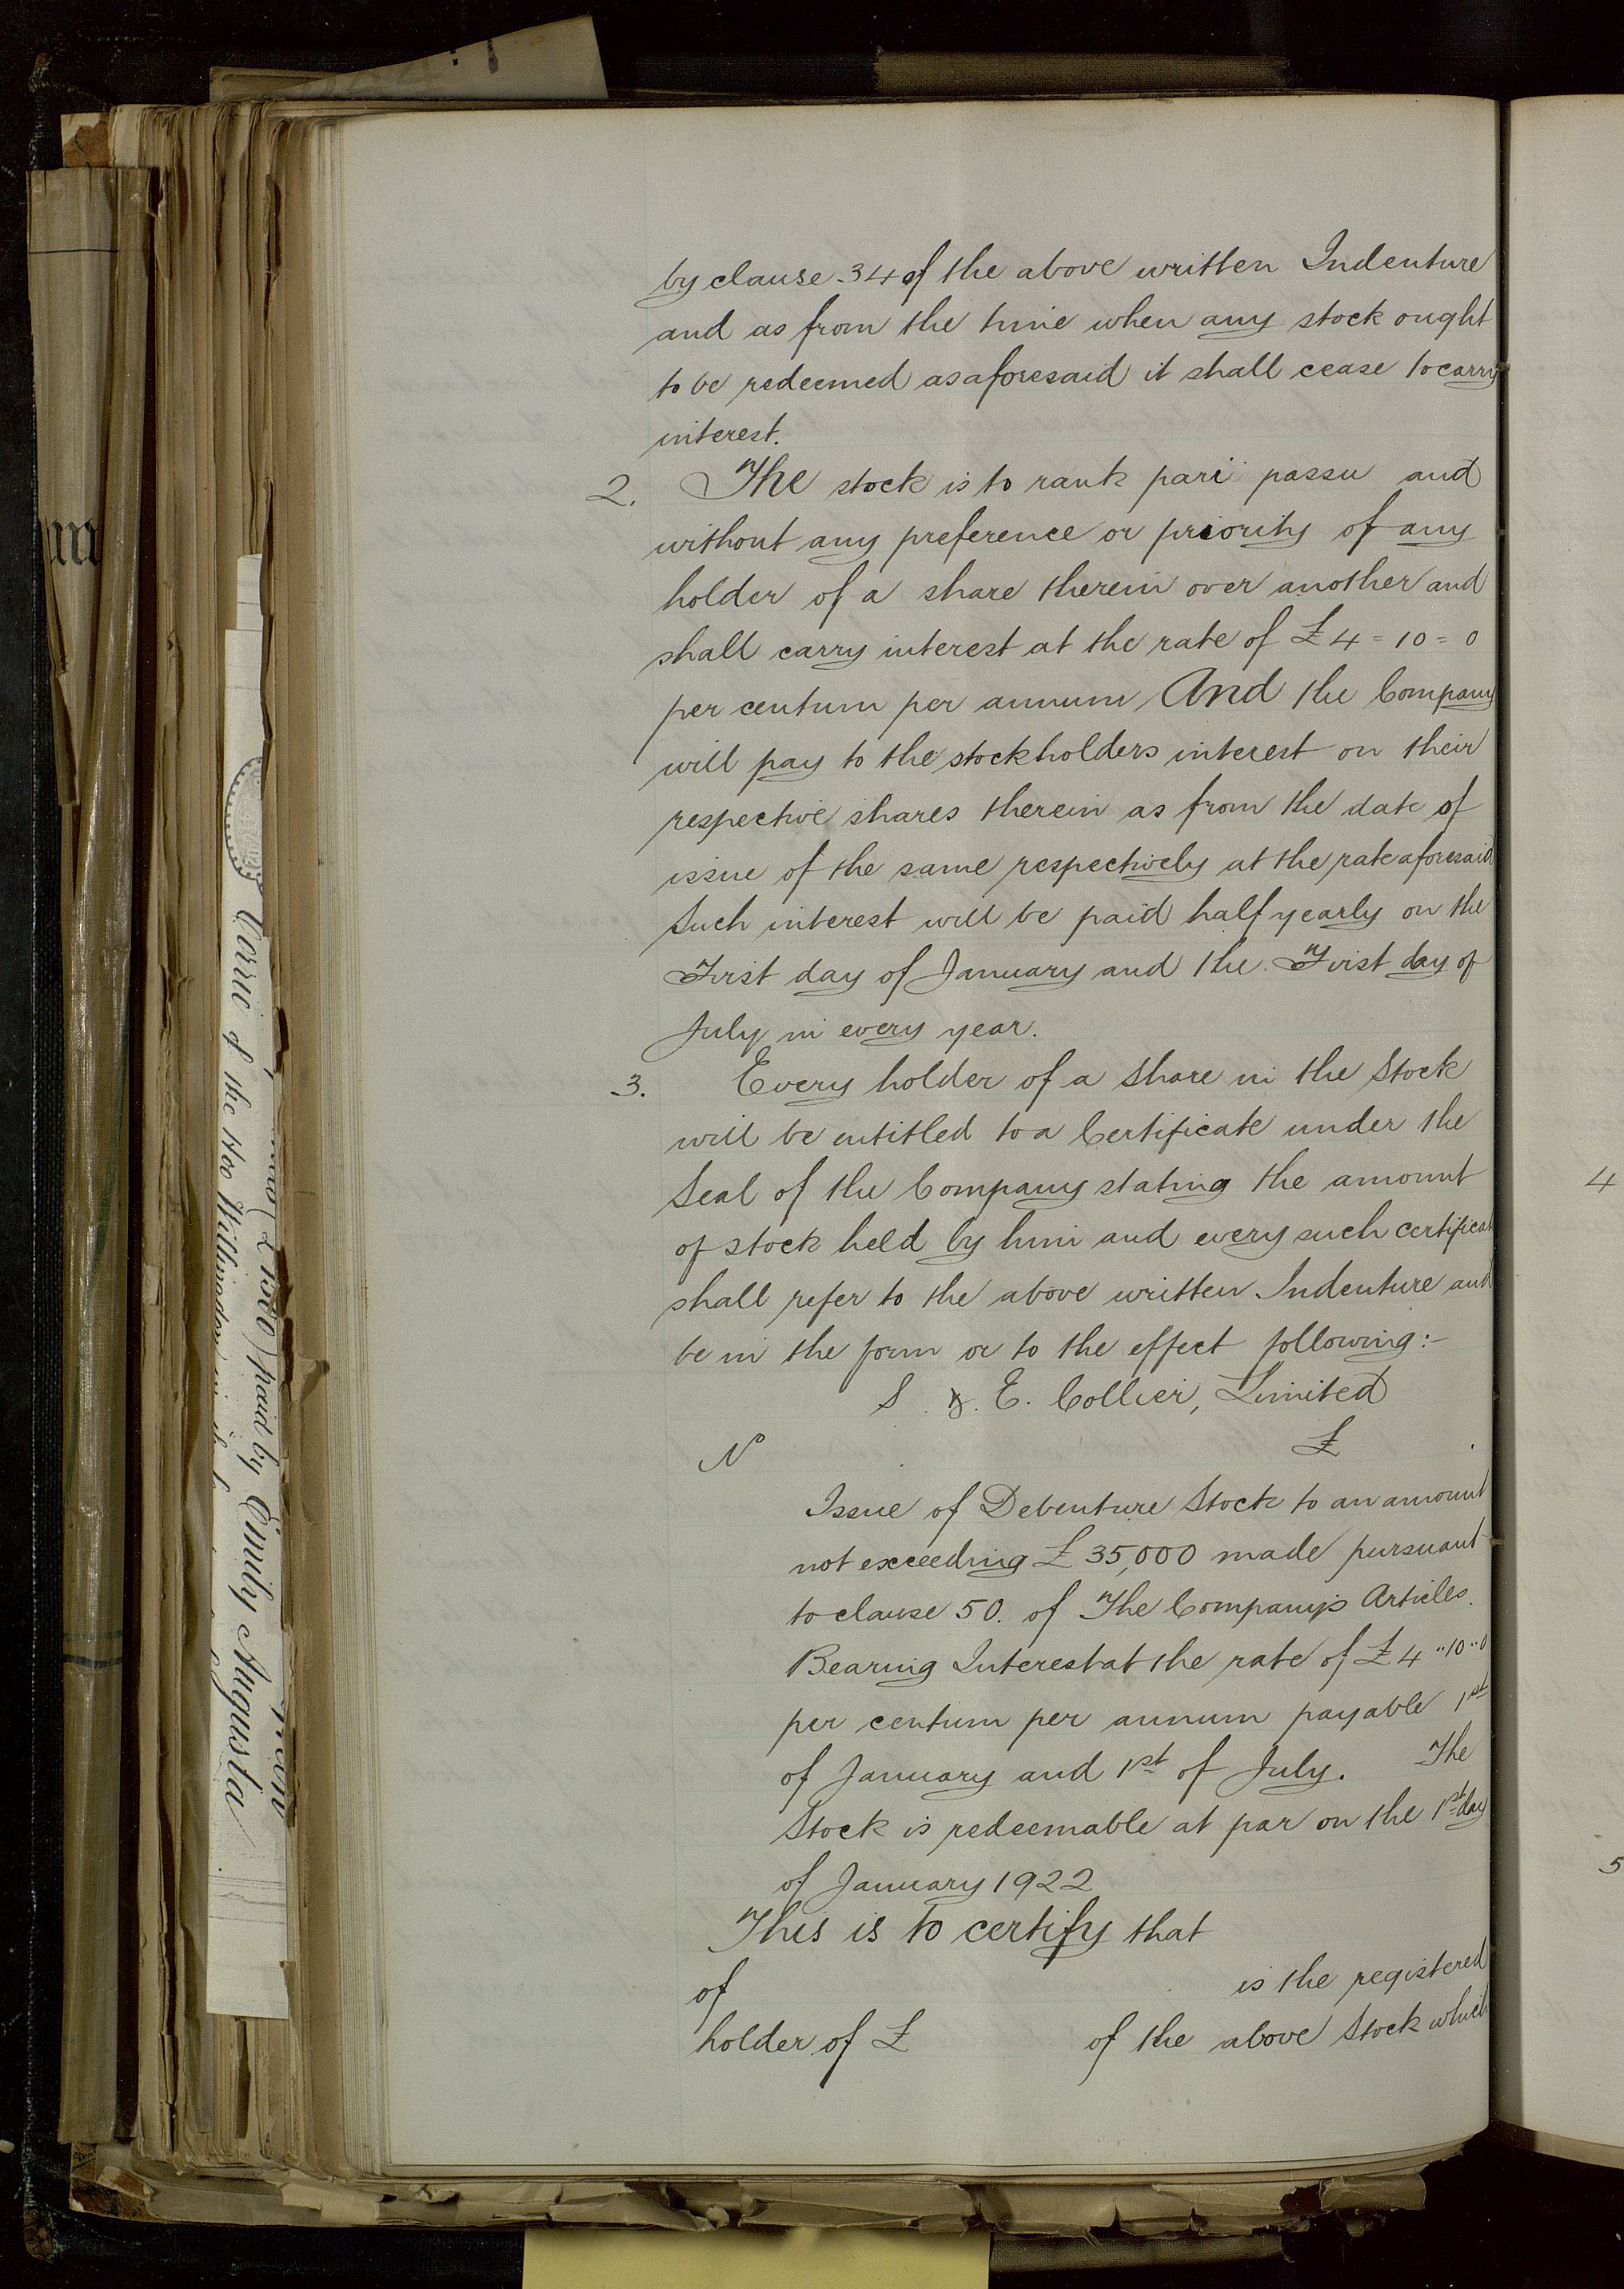 by clause 34 of the above written Indenture
and as from the time when any stock ought
to be redeemed as aforesaid it shall cease to carry
interest.
2. The stock is to rank pari passu and
without any preference or priority of any
holder of a share therein over another and
shall carry interest at the rate of £4=10=0
per centum per annum And the Company
will pay to the stockholders interest on their
respective shares therein as from the date of
issue of the same respectively at the rate aforesaid
Such interest will be paid half yearly on the
First day of January and the First day of
July in every year.
3. Every holder of a share in the Stock
will be entitled to a Certificate under the
Seal of the Company stating the amount
of stock held by him and every such certificat
shall refer to the above written Indenture and
be in the form or to the effect following:-
S & E. Collier, Limited
No £
Issue of Debenture Stock to an amount
not exceeding £35,000 made pursuant
to clause 50. of The Company's Articles.
Bearing Interest at the rate of £4"10"0
per centum per annum payable 1st
of January and 1st of July. The
Stock is redeemable at par on the 1st day
of January 1922
This is to certify that
of is the registered
holder of £ of the above Stock which
4
5
paid by Emily Augusta
of the